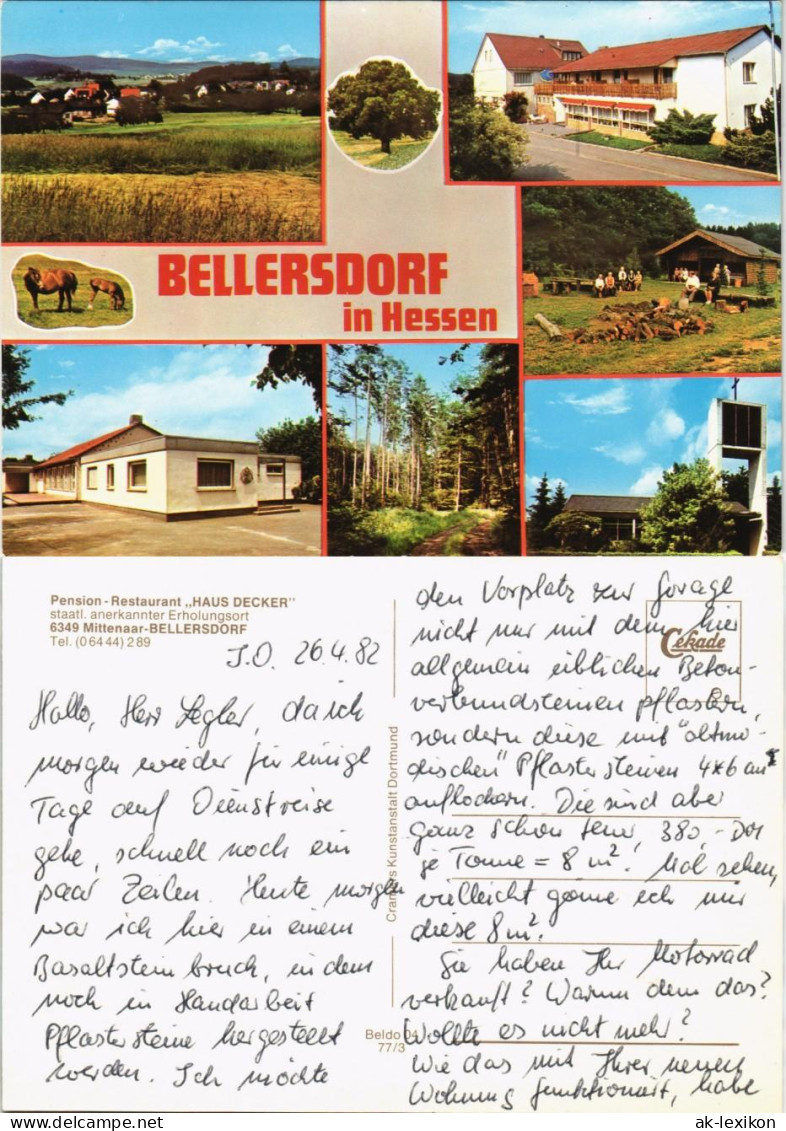 BELLERSDORF
in Hessen
Pension - Restaurant „HAUS DECKER"
staatl. anerkannter Erholungsort
6349 Mittenaar-BELLERSDORF
Tel. (0 64 44) 2 89
J.O. 26.4.82
Hallo, Herr Legler, da ich
morgen wieder für einige
Tage auf Dienstreise
gehe, schnell noch ein
paar Zeilen. Heute morgen
war ich hier in einem
Basaltsteinbruch, in dem
noch in Handarbeit
Pflastersteine hergestellt
werden. Ich möchte
Cramers Kunstanstalt Dortmund
Beldo 04
77/3
Cekade
den Vorplatz zur Garage
nicht nur mit dem hier
allgemein üblichen Beton-
verbundsteinen pflastern,
sondern diese mit "altmo-
dischen" Pflastersteinen 4x6 an
auflockern. Die sind aber
ganz schön teuer, 380,- DM
je Tonne = 8 m². Mal sehen,
vielleicht nehme ich nur
diese 8 m².
Sie haben Ihr Motorrad
verkauft? Warum denn das?
Wollte es nicht mehr?
Wie das mit Ihrer neuen
Wohnung funktioniert, habe
ak-lexikon